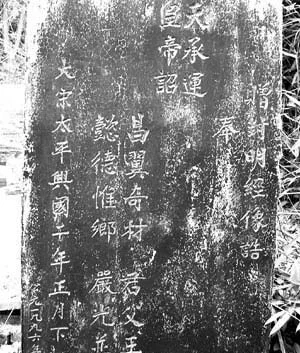 贈封明經像誥
奉
天承運
皇帝詔
昌翼奇材 君父王
懿德惟鄉 嚴光並
大宋太平興國二年正月下
一九九六年